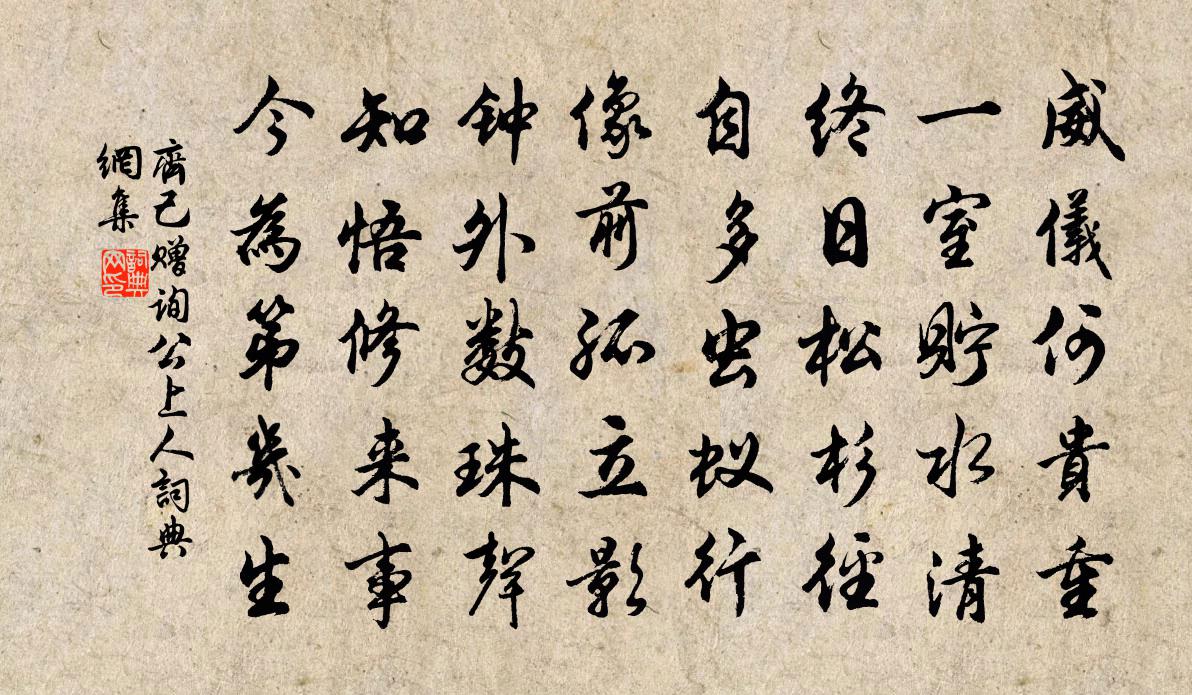 威儀何貴重
一室貯水清
終日松杉徑
自多虫蚁行
像前孤立影
钟外數珠聲
知悟修来事
今為第幾生
齊己赠询公上人詞典
網集
詞典
网印